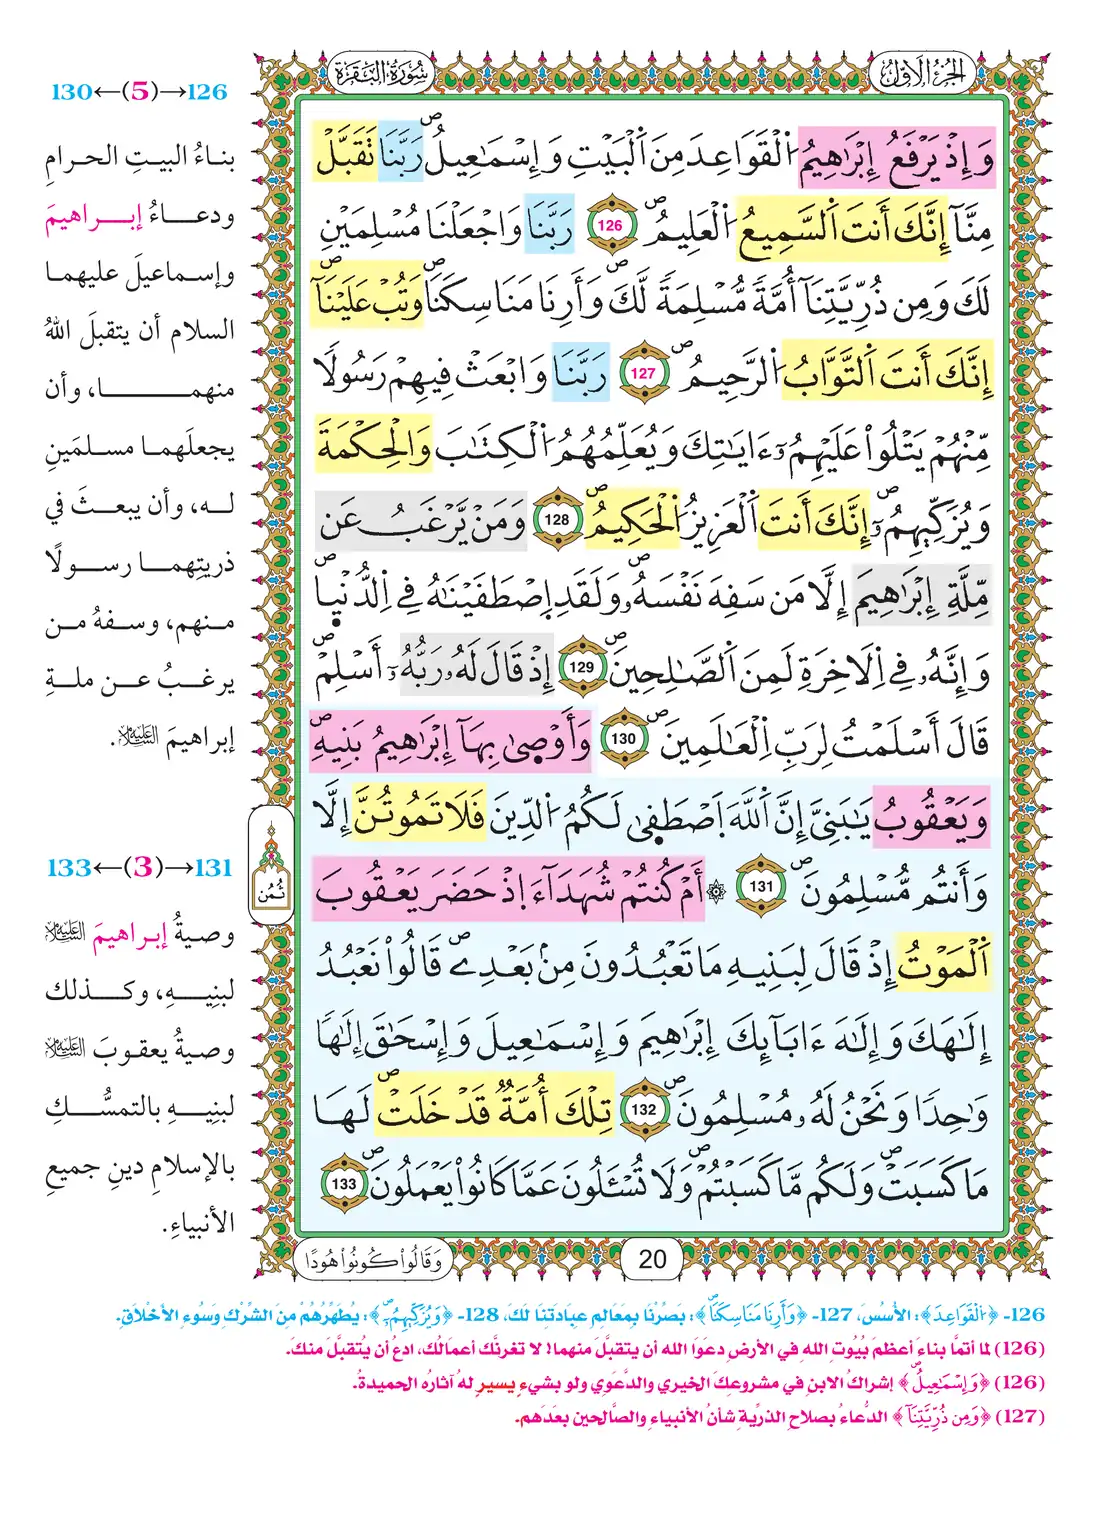 الجزء الأول
سورة البقرة
وَإِذْ يَرْفَعُ إِبْرَٰهِيمُ اُ۬لْقَوَاعِدَ مِنَ اَ۬لْبَيْتِ وَإِسْمَٰعِيلُۖ رَبَّنَا تَقَبَّلْ
مِنَّآ إِنَّكَ أَنتَ اَ۬لسَّمِيعُ اُ۬لْعَلِيمُۖ 126 رَبَّنَا وَاجْعَلْنَا مُسْلِمَيْنِ
لَكَ وَمِن ذُرِّيَّتِنَآ أُمَّةٗ مُّسْلِمَةٗ لَّكَۖ وَأَرِنَا مَنَاسِكَنَاۖ وَتُبْ عَلَيْنَآۖ
إِنَّكَ أَنتَ اَ۬لتَّوَّابُ اُ۬لرَّحِيمُۖ 127 رَبَّنَا وَابْعَثْ فِيهِمْ رَسُولٗا
مِّنْهُمْ يَتْلُواْ عَلَيْهِمُۥٓ ءَايَٰتِكَ وَيُعَلِّمُهُمُ اُ۬لْكِتَٰبَ وَالْحِكْمَةَ
وَيُزَكِّيهِمُۥٓۖ إِنَّكَ أَنتَ اَ۬لْعَزِيزُ اُ۬لْحَكِيمُۖ 128 وَمَنْ يَّرْغَبُ عَن
مِّلَّةِ إِبْرَٰهِيمَ إِلَّا مَن سَفِهَ نَفْسَهُۥۖ وَلَقَدِ اِ۪صْطَفَيْنَٰهُ فِے اِ۬لدُّنْي۪اۖ
وَإِنَّهُۥ فِے اِ۬لَاخِرَةِ لَمِنَ اَ۬لصَّٰلِحِينَۖ 129 إِذْ قَالَ لَهُۥ رَبُّهُۥٓ أَسْلِمْۖ
قَالَ أَسْلَمْتُ لِرَبِّ اِ۬لْعَٰلَمِينَۖ 130 وَأَوْص۪ىٰ بِهَآ إِبْرَٰهِيمُ بَنِيهِۖ
وَيَعْقُوبُ يَٰبَنِيَّ إِنَّ اَ۬للَّهَ اَ۪صْطَف۪ىٰ لَكُمُ اُ۬لدِّينَ فَلَا تَمُوتُنَّ إِلَّا
وَأَنتُم مُّسْلِمُونَۖ 131 ۞ أَمْ كُنتُمْ شُهَدَآءَ اِذْ حَضَرَ يَعْقُوبَ
اَ۬لْمَوْتُ إِذْ قَالَ لِبَنِيهِ مَا تَعْبُدُونَ مِنۢ بَعْدِےۖ قَالُواْ نَعْبُدُ
إِلَٰهَكَ وَإِلَٰهَ ءَابَآئِكَ إِبْرَٰهِيمَ وَإِسْمَٰعِيلَ وَإِسْحَٰقَ إِلَٰهٗا
وَٰحِدٗا وَنَحْنُ لَهُۥ مُسْلِمُونَۖ 132 تِلْكَ أُمَّةٞ قَدْ خَلَتْۖ لَهَا
مَا كَسَبَتْۖ وَلَكُم مَّا كَسَبْتُمْۖ وَلَا تُسْـَٔلُونَ عَمَّا كَانُواْ يَعْمَلُونَۖ 133
ثُمُن
وَقَالُواْ كُونُواْ هُودًا
20
126→(5)←130
بناءُ البيتِ الحرامِ
ودعاءُ إبراهيمَ
وإسماعيلَ عليهما
السلام أن يتقبلَ اللهُ
منهما، وأن
يجعلَهما مسلمَينِ
له، وأن يبعثَ في
ذريتِهما رسولًا
منهم، وسفهُ من
يرغبُ عن ملةِ
إبراهيمَ عليه السلام.
131→(3)←133
وصيةُ إبراهيمَ عليه السلام
لبنِيهِ، وكذلك
وصيةُ يعقوبَ عليه السلام
لبنِيهِ بالتمسُّكِ
بالإسلامِ دينِ جميعِ
الأنبياءِ.
126- ﴿اُ۬لْقَوَاعِدَ﴾: الأُسُسَ، 127- ﴿وَأَرِنَا مَنَاسِكَنَاۖ﴾: بَصِّرْنَا بِمَعَالِمِ عِبَادَتِنَا لَكَ، 128- ﴿وَيُزَكِّيهِمُۥٓۖ﴾: يُطَهِّرُهُمْ مِنَ الشِّرْكِ وَسُوءِ الأَخْلَاقِ.
(126) لما أتمَّا بناءَ أعظمِ بُيُوتِ اللهِ في الأرضِ دعَوَا الله أن يتقبَّلَ منهما! لا تغرنَّك أعمالُك، ادعُ أن يُتقبَّلَ منكَ.
(126) ﴿وَإِسْمَٰعِيلُۖ﴾ إشراكُ الابنِ في مشروعِكَ الخيري والدَّعَوِي ولو بشيءٍ يسيرٍ لهُ آثارُه الحميدةُ.
(127) ﴿وَمِن ذُرِّيَّتِنَآ﴾ الدُّعاءُ بصلاحِ الذرِّيةِ شأنُ الأنبياءِ والصَّالحين بعدَهم.